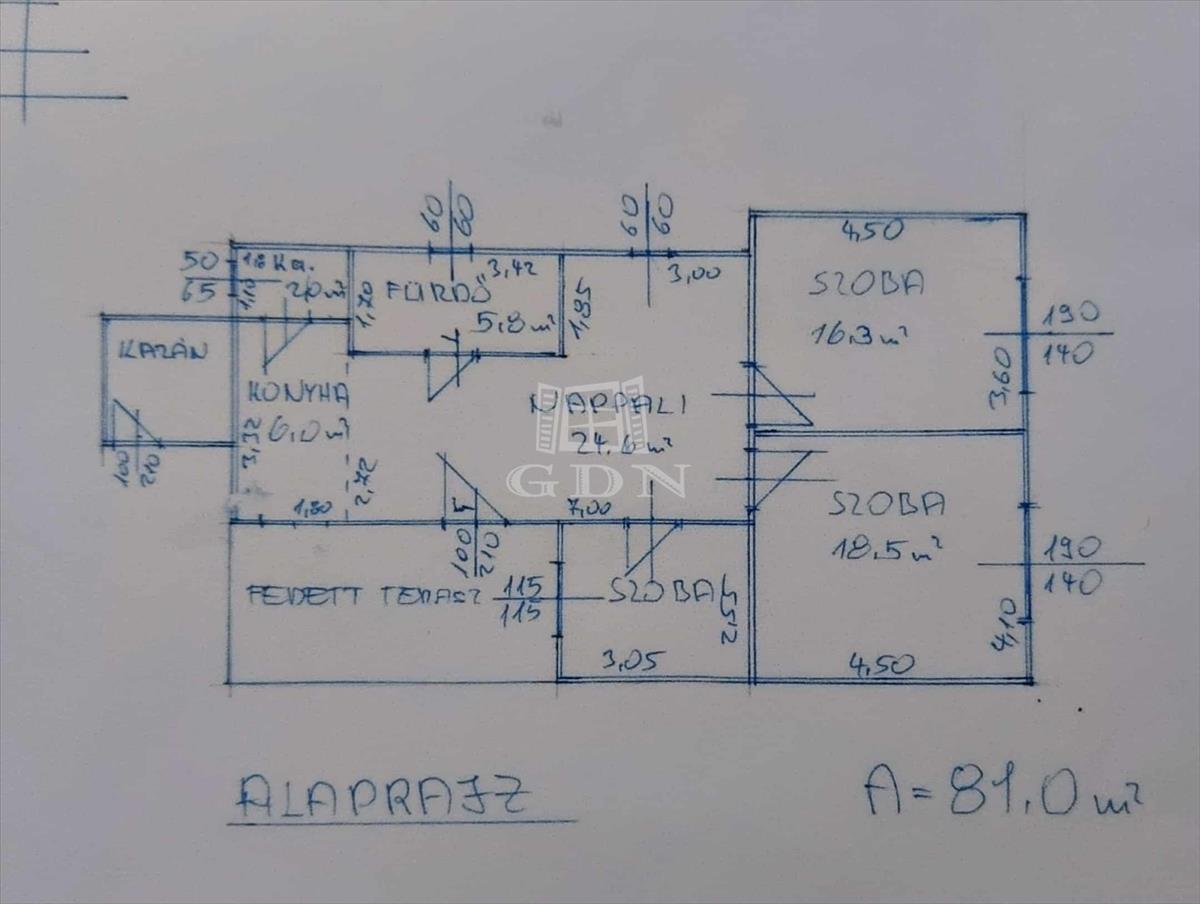 60 60
60 60
4,50
50
65
1,10
2,0 m²
FÜRDŐ
3,42
5,8 m²
1,70
1,95
3,00
SZOBA
16.3 m²
190
140
3,60
KAZÁN
100
210
KONYHA
6,0 m²
3,32
2,72
1,80
NAPPALI
24.6 m²
GDN
7,00
100
210
SZOBA
18.5 m²
190
140
4,10
4,50
FEDETT TERASZ
115
115
SZOBA
3,05
ALAPRAJZ
A = 81.0 m²